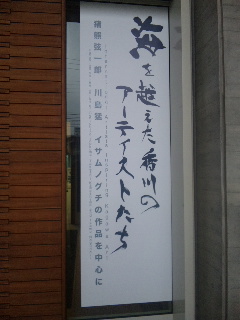 海を越えた香川の
アーティストたち
猪熊弦一郎 川島猛 イサムノグチの作品を中心に